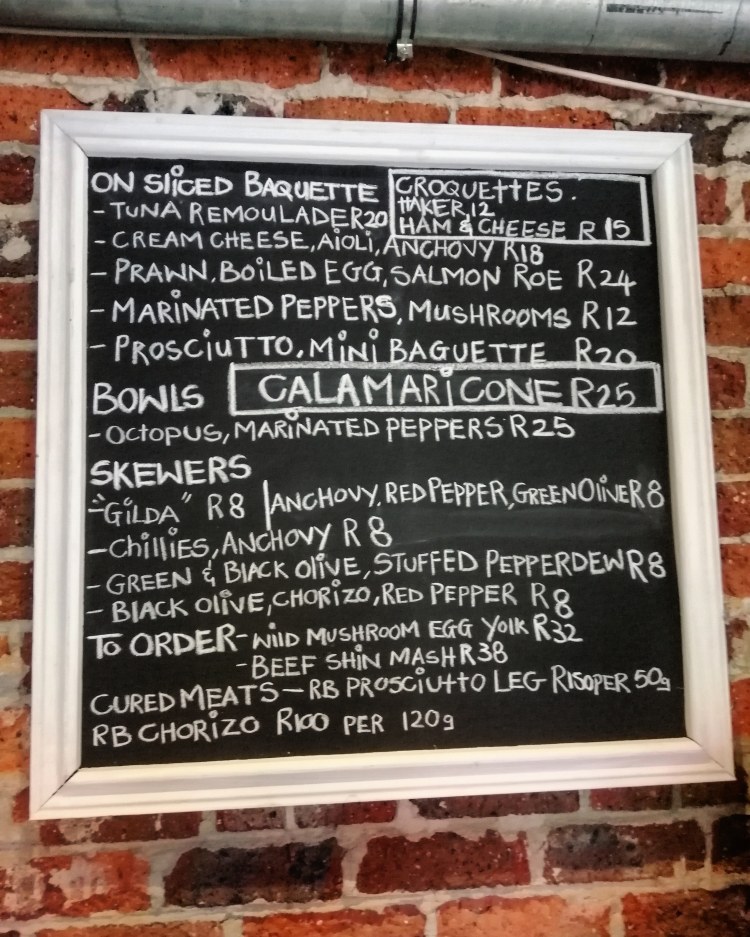 ON SliCED BAQUETTE
CROQUEttES.
HAKER 12
HAM & CHEESE R 15
- TUNA REMOULADE R20
- CREAM CHEESE, AiOLi, ANCHOVY R18
- PRAWN, BOiLED EGG, SALMON ROE R24
- MARiNATED PEPPERS, MUSHROOMS R12
- PROSCIUTTO, MiNi BAGUETTE R20
BOWLS
CALAMARi CONE R25
- OCTOPUS, MARiNATED PEPPERS R25
SKEWERS
- "GiLDA" R8 | ANCHOVY, RED PEPPER, GREEN OliVE R8
- CHillIES, ANCHOVY R 8
- GREEN & BlACK OliVE, STUFFED PEPPERDEW R8
- BLACK OliVE, CHORiZO, RED PEPPER R8
TO ORDER - WilD MUSHROOM EGG YOlK R32
- BEEF SHiN MASH R38
CURED MEATS - RB PROSCiUttO LEG R150 PER 50g
RB CHORiZO R100 PER 120g